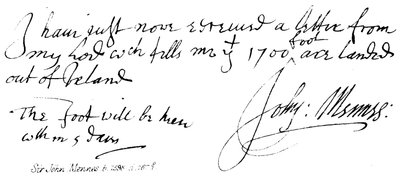 I haue just now receiued a letter from
my lord wch tells me yt 1700 foot are landed
out of Ireland
The Foot will be here
wthin 3 dais
John: Mennes:
Sir John Mennes b. 1598 d. 1671